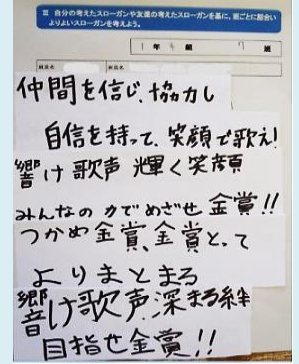 自分の考えたスローガンや友達の考えたスローガンを基に、班ごとに話合い
よりよいスローガンを考えよう。
1年 組 班
仲間を信じ、協力し
自信を持って、笑顔で歌え!
響け歌声 輝く笑顔
みんなの力でめざせ 金賞!!
つかめ金賞、金賞とって
よりまとまる
響け歌声、深まる絆
目指せ金賞!!